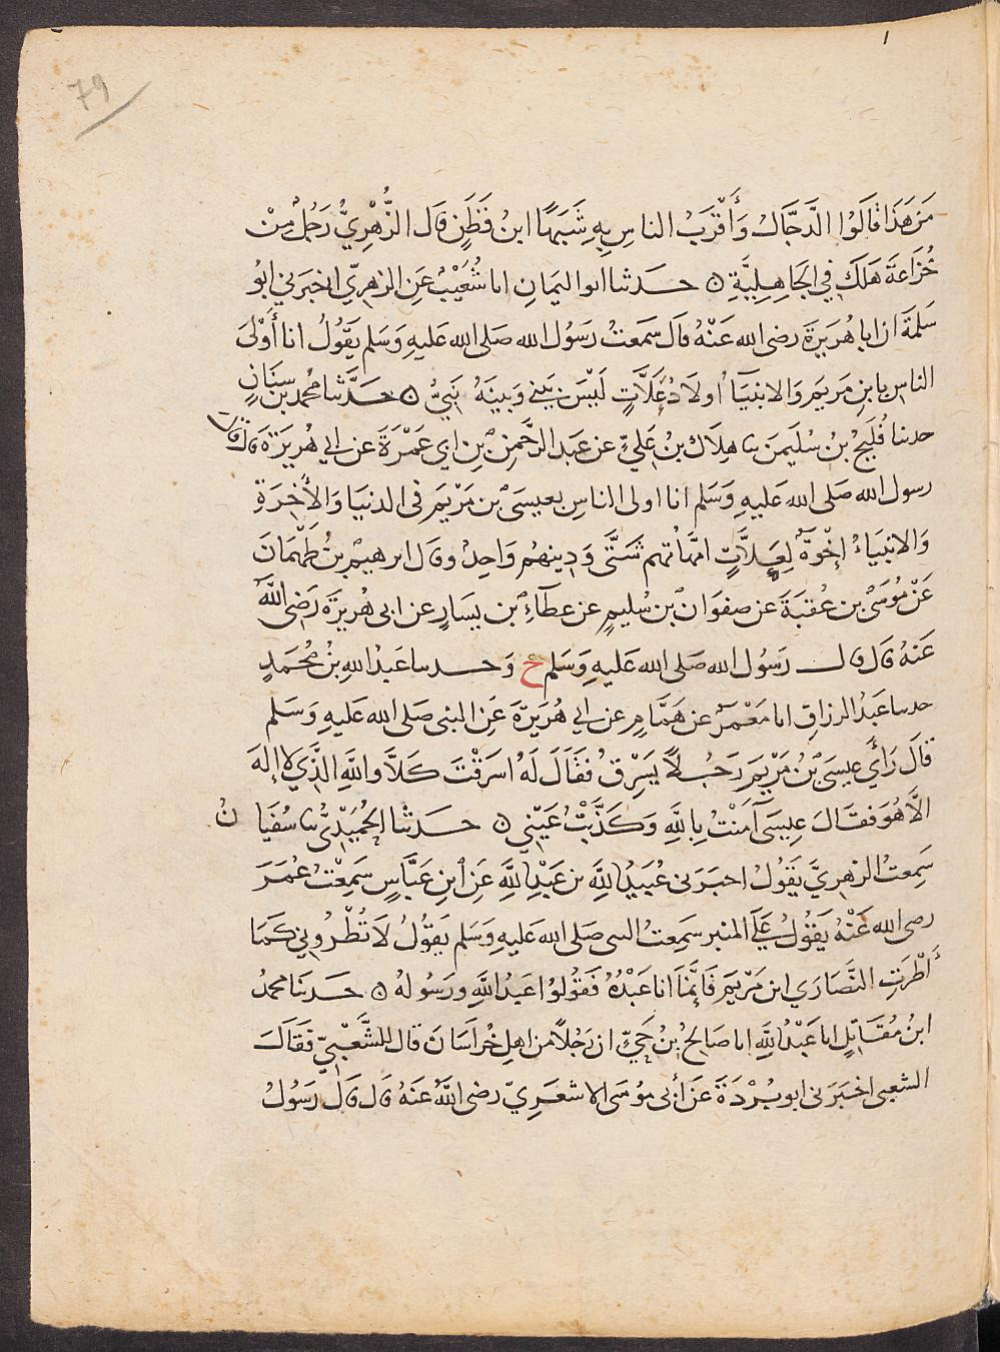 79
١
مَن هَذَا قَالَوُا الدَّجَّالُ وَأَقْرَبُ الناسِ بِهِ شَبَهًا ابنُ قَطَنٍ قَالَ الزُّهْرِيُّ رَجُلٌ مِنْ
خُزَاعَةَ هَلَكَ فِي الجَاهِلِيَّةِ ن حدثنا ابو اليَمَانِ انا شُعَيْبٌ عَنِ الزهرِيّ اخبَرَني ابُو
سَلَمَةَ ان ابا هُرَيرَةَ رضى الله عَنْهُ قَالَ سَمَعتُ رَسُول الله صَلى الله عَليهِ وَسَلم يَقُولُ انا أَوْلَى
الناسِ بابنِ مَريَم وَالانبيَآءُ اولَادُ عَلَّاتٍ لَيْسَ بَيني وَبينَهُ نَبيٌّ ن حَدَّثنا محمد بن سِنَانٍ
حدثنا فُلَيحُ بن سُلَيمنَ ثنا هِلَالُ بنُ عَليٍّ عن عَبد الرَّحمنِ بنِ ابى عَمْرَةَ عن ابي هُرَيرَةَ قال قال
رسول الله صَلى الله عَليهِ وَسَلم انا اولى الناسِ بعيسَى بن مَرْيَم فى الدنيَا وَالأَخِرَةِ
وَالانبيَاءُ إِخْوَةٌ لِعَلَّاتٍ امهَاتهم شَتَّى وَدِينهُم وَاحِدٌ وقَال ابرهيمُ بنُ طَهْمَانَ
عَنْ مُوسَى بن عُقبَةَ عن صفوَانَ بن سُليمٍ عن عطآءِ بن يَسَارٍ عن ابى هُريرَة رَضى اللهُ
عَنهُ قَال قال رَسُول الله صَلى الله عَليهِ وَسَلم ح وَحدثنا عَبدُ اللهِ بنُ محُمَدٍ
حدثنا عَبدُ الرزاقِ انا مَعْمَرٌ عن هَمَّامٍ عن ابي هُرَيرَةَ عَنِ النبى صَلى الله عَليهِ وَسَلم
قَالَ رَأَى عِيسَى بنُ مَرْيمَ رَجُلًا يَسْرِقُ فَقَالَ لَهُ اسَرَقْتَ كَلَّا وَاللهِ الَّذِي لا إِلهَ
الَّا هُوَ فقَالَ عِيسَى آمَنْتُ بِاللهِ وَكَذَّبْتُ عَيْنِي ن حَدثنا الحُمَيْدِيُّ ثنا سُفيَانُ
سَمِعتُ الزهريَّ يَقُولُ اخبَرَنى عُبَيدُ اللهِ بن عَبْدِ اللهِ عَنِ ابْنِ عَبَّاسٍ سَمِعْتُ عُمَرَ
رضى الله عَنْهُ يَقُولُ عَلَى المنبرِ سَمِعتُ النبى صَلى الله عَليهِ وَسَلم يَقُولُ لَا تُطْرُونِي كَمَا
أَطْرَتِ النَّصَارَى ابن مَرْيَم فَإِنَّمَا انا عَبْدُهُ فَقُولُوا عَبدُ اللهِ وَرَسُولهُ ن حَدثنا محمدُ
ابنُ مُقَاتِلٍ انا عَبْدُ اللهِ انا صَالِحُ بْنُ حَيّ ان رَجُلًا من اهلِ خُرَاسَانَ قال للشَّعْبيّ فَقَالَ
الشعبى اخبَرَنى ابو بُرْدَةَ عَن أبى مُوسَى الاشعَرِيّ رضى اللهُ عَنهُ قَال قَال رَسُولُ